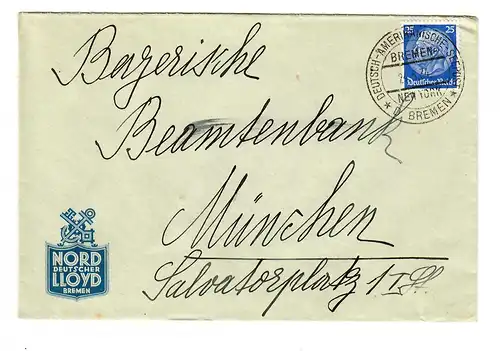 DEUTSCH-AMERIKANISCHE
BREMEN-
NEW YORK
BREMEN
25 25
Deutsches Reich
Bayerische
Beamtenbank
München
Salvatorplatz 1 I St.
NORD
DEUTSCHER
LLOYD
BREMEN